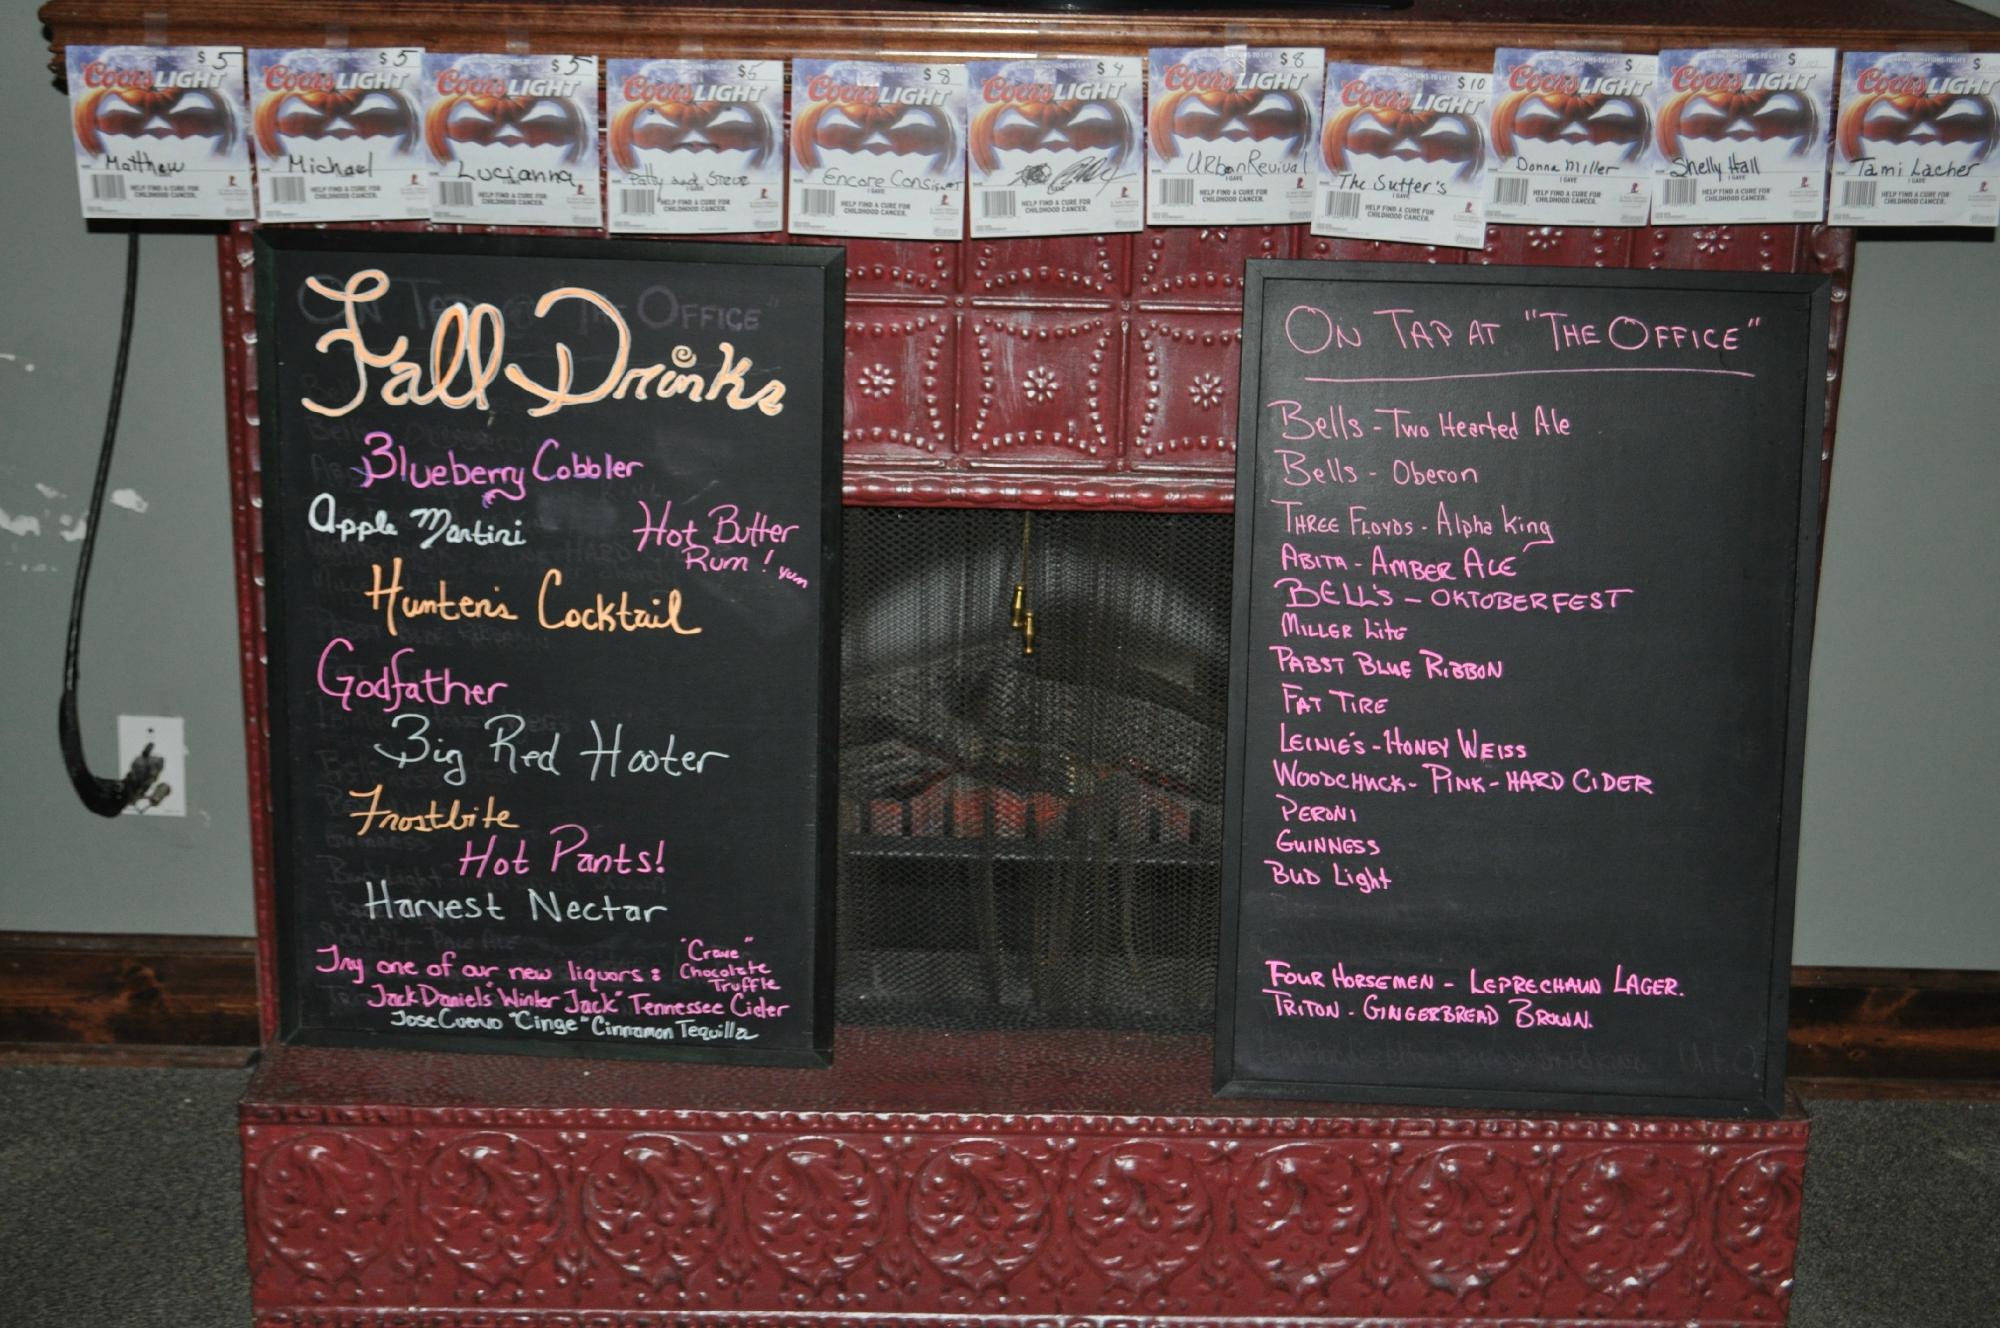 $5
Coors LIGHT
Matthew
HELP FIND A CURE FOR
CHILDHOOD CANCER.
$5
Coors LIGHT
Michael
HELP FIND A CURE FOR
CHILDHOOD CANCER.
$5
Coors LIGHT
Lucianna
HELP FIND A CURE FOR
CHILDHOOD CANCER.
$5
Coors LIGHT
Patty and Steve
I GAVE
HELP FIND A CURE FOR
CHILDHOOD CANCER.
$8
Coors LIGHT
Encore Consignment
I GAVE
HELP FIND A CURE FOR
CHILDHOOD CANCER.
$4
Coors LIGHT
HELP FIND A CURE FOR
CHILDHOOD CANCER.
$8
Coors LIGHT
Urban Revival
I GAVE
HELP FIND A CURE FOR
CHILDHOOD CANCER.
$10
Coors LIGHT
The Sutter's
I GAVE
HELP FIND A CURE FOR
CHILDHOOD CANCER.
$
Coors LIGHT
Donna Miller
I GAVE
HELP FIND A CURE FOR
CHILDHOOD CANCER.
$
Coors LIGHT
Shelly Hall
I GAVE
HELP FIND A CURE FOR
CHILDHOOD CANCER.
$
Coors LIGHT
Tami Lacher
HELP FIND A CURE FOR
CHILDHOOD CANCER.
Fall Drinks
Blueberry Cobbler
Apple Martini
Hot Butter
Rum! yum
Hunter's Cocktail
Godfather
Big Red Hooter
Frostbite
Hot Pants!
Harvest Nectar
Try one of our new liquors: "Crave"
Chocolate
Truffle
Jack Daniels "Winter Jack" Tennessee Cider
Jose Cuervo "Cinge" Cinnamon Tequilla
ON TAP AT "THE OFFICE"
Bells - Two Hearted Ale
Bells - Oberon
THREE FLOYDS - Alpha King
ABITA - AMBER ALE
BELL'S - OKTOBERFEST
MILLER LITE
PABST BLUE RIBBON
FAT TIRE
LEINIE'S - HONEY WEISS
WOODCHUCK - PINK - HARD CIDER
PERONI
GUINNESS
BUD LIGHT
FOUR HORSEMEN - LEPRECHAUN LAGER.
TRITON - GINGERBREAD BROWN.